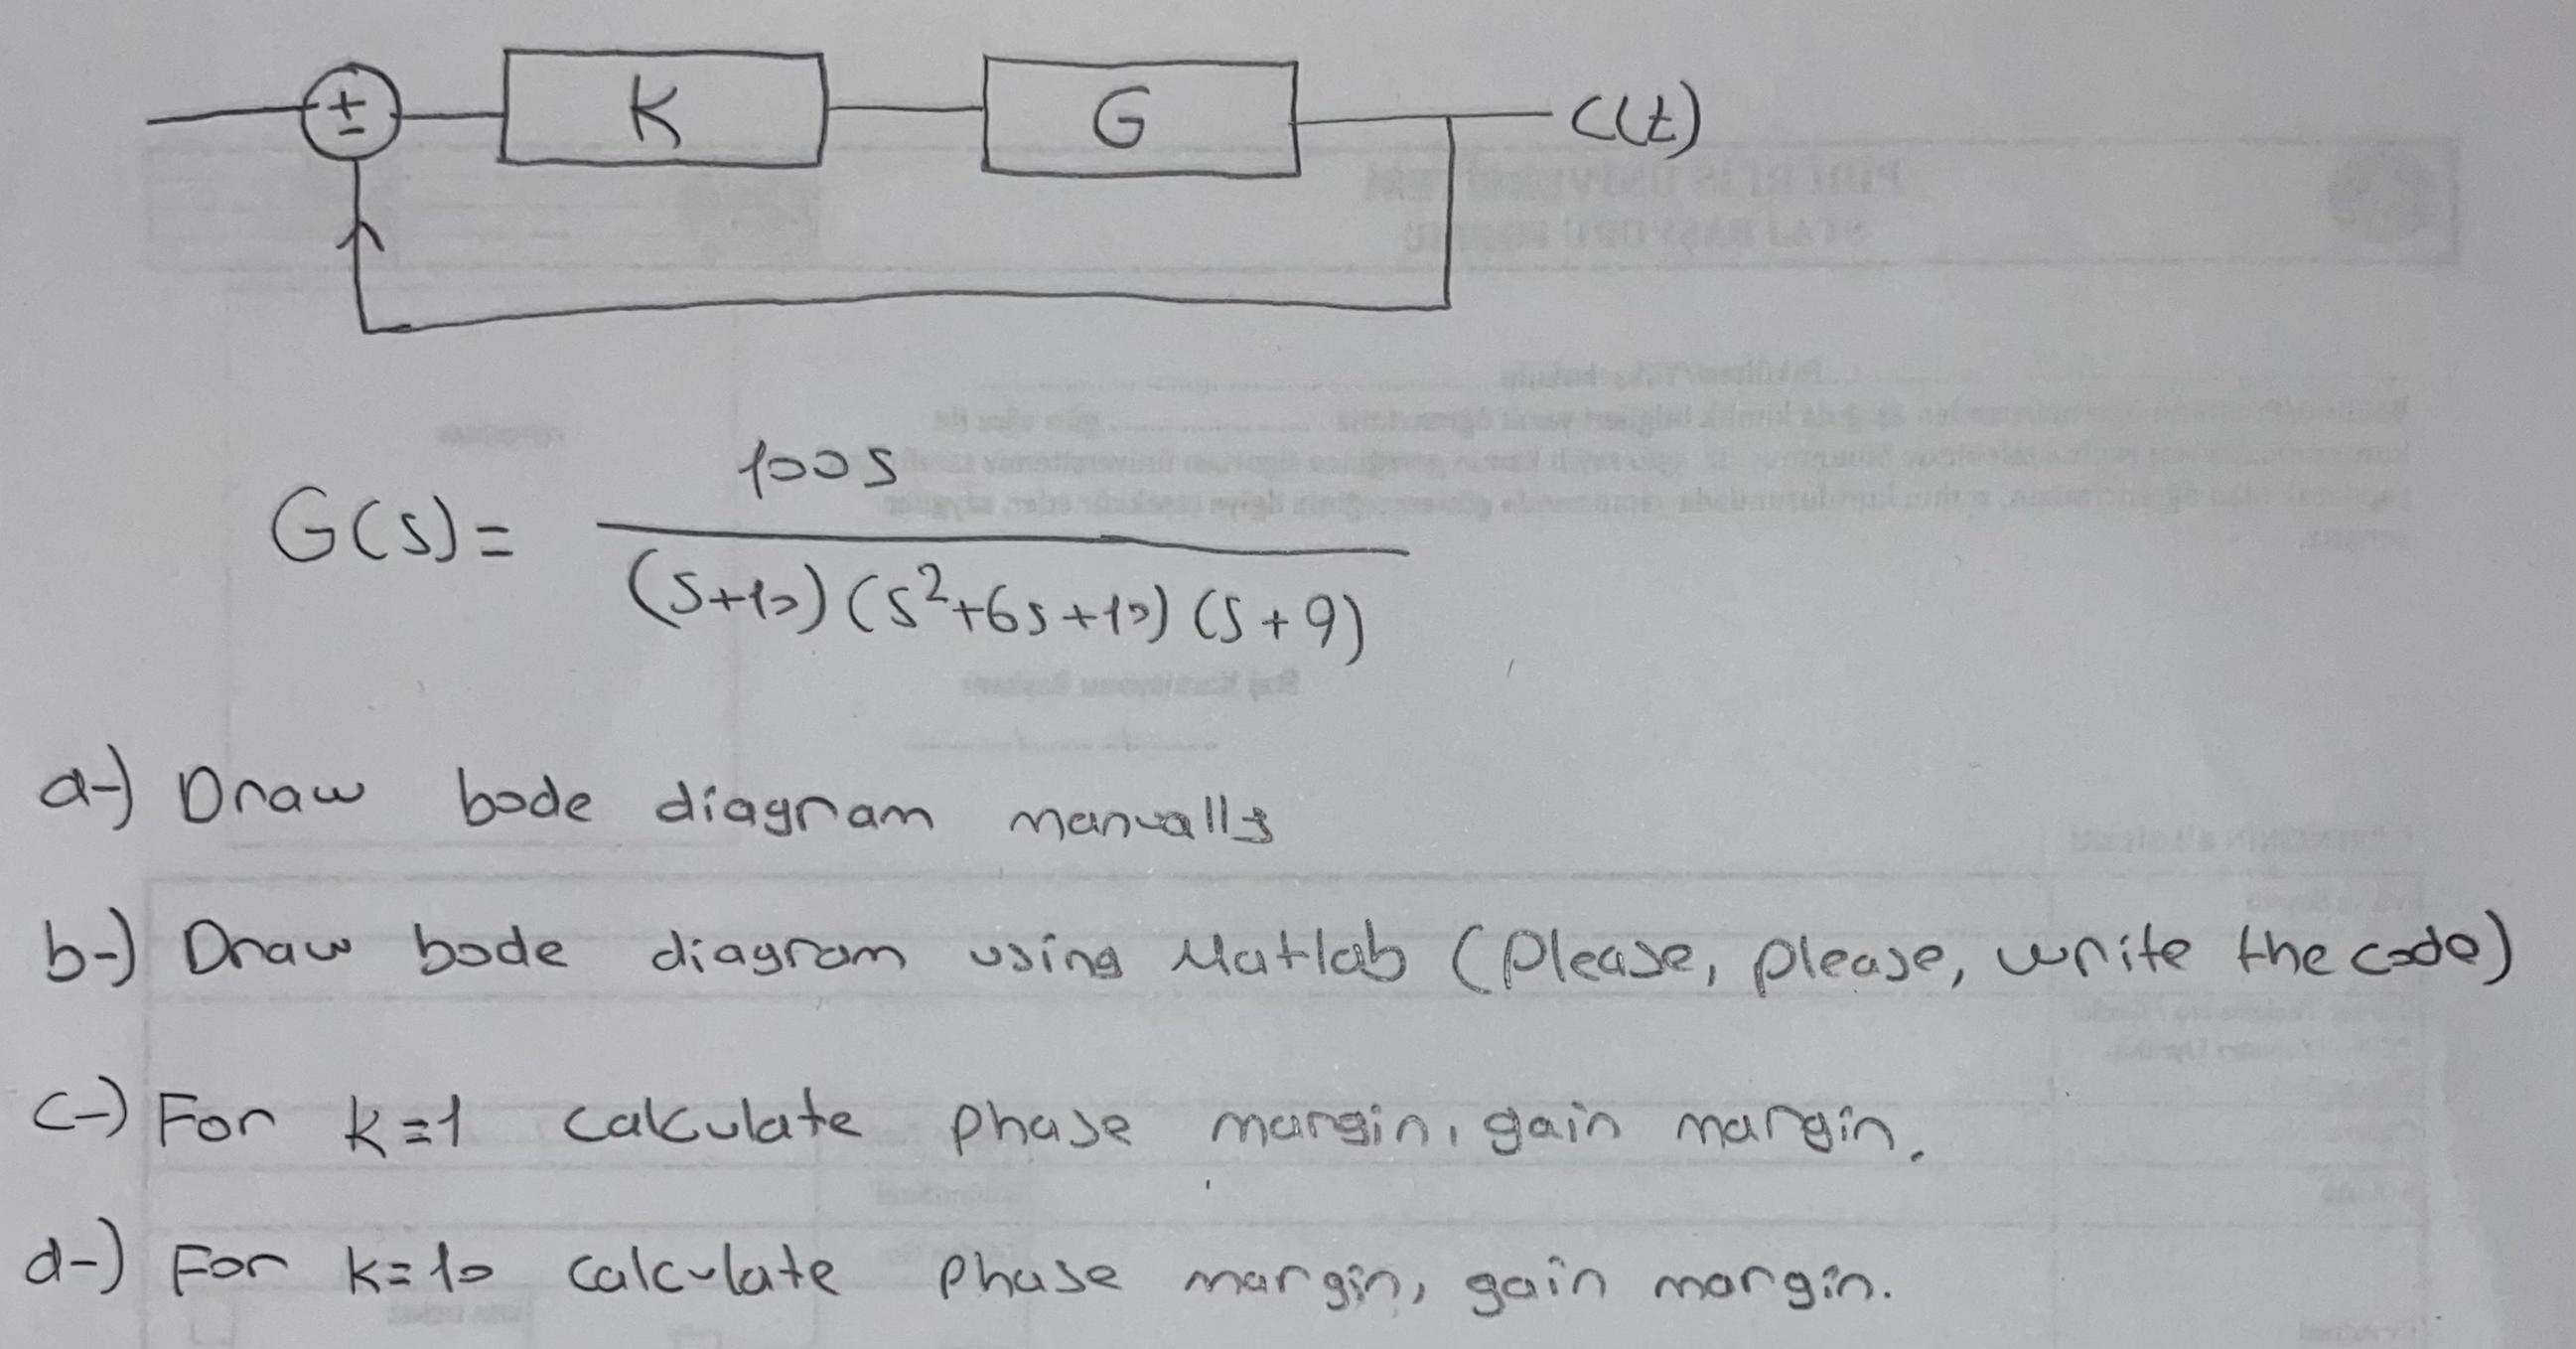 ±
K
G
C(t)
G(s) = 100s / (s+10)(s²+6s+10)(s+9)
a-) Draw bode diagram manually
b-) Draw bode diagram using Matlab (Please, please, write the code)
c-) For k=1 calculate phase margin, gain margin.
d-) For k=10 calculate phase margin, gain margin.